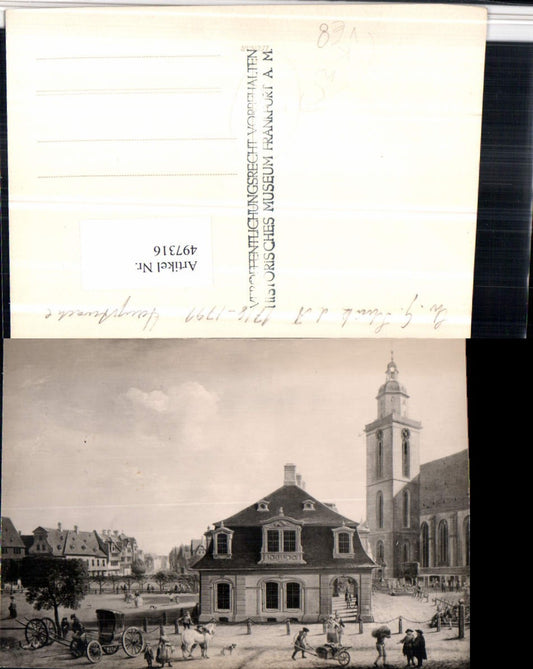 VERÖFFENTLICHUNGSRECHT VORBEHALTEN
HISTORISCHES MUSEUM FRANKFURT A. M.
Artikel Nr.
497316
1791 Hauptwache